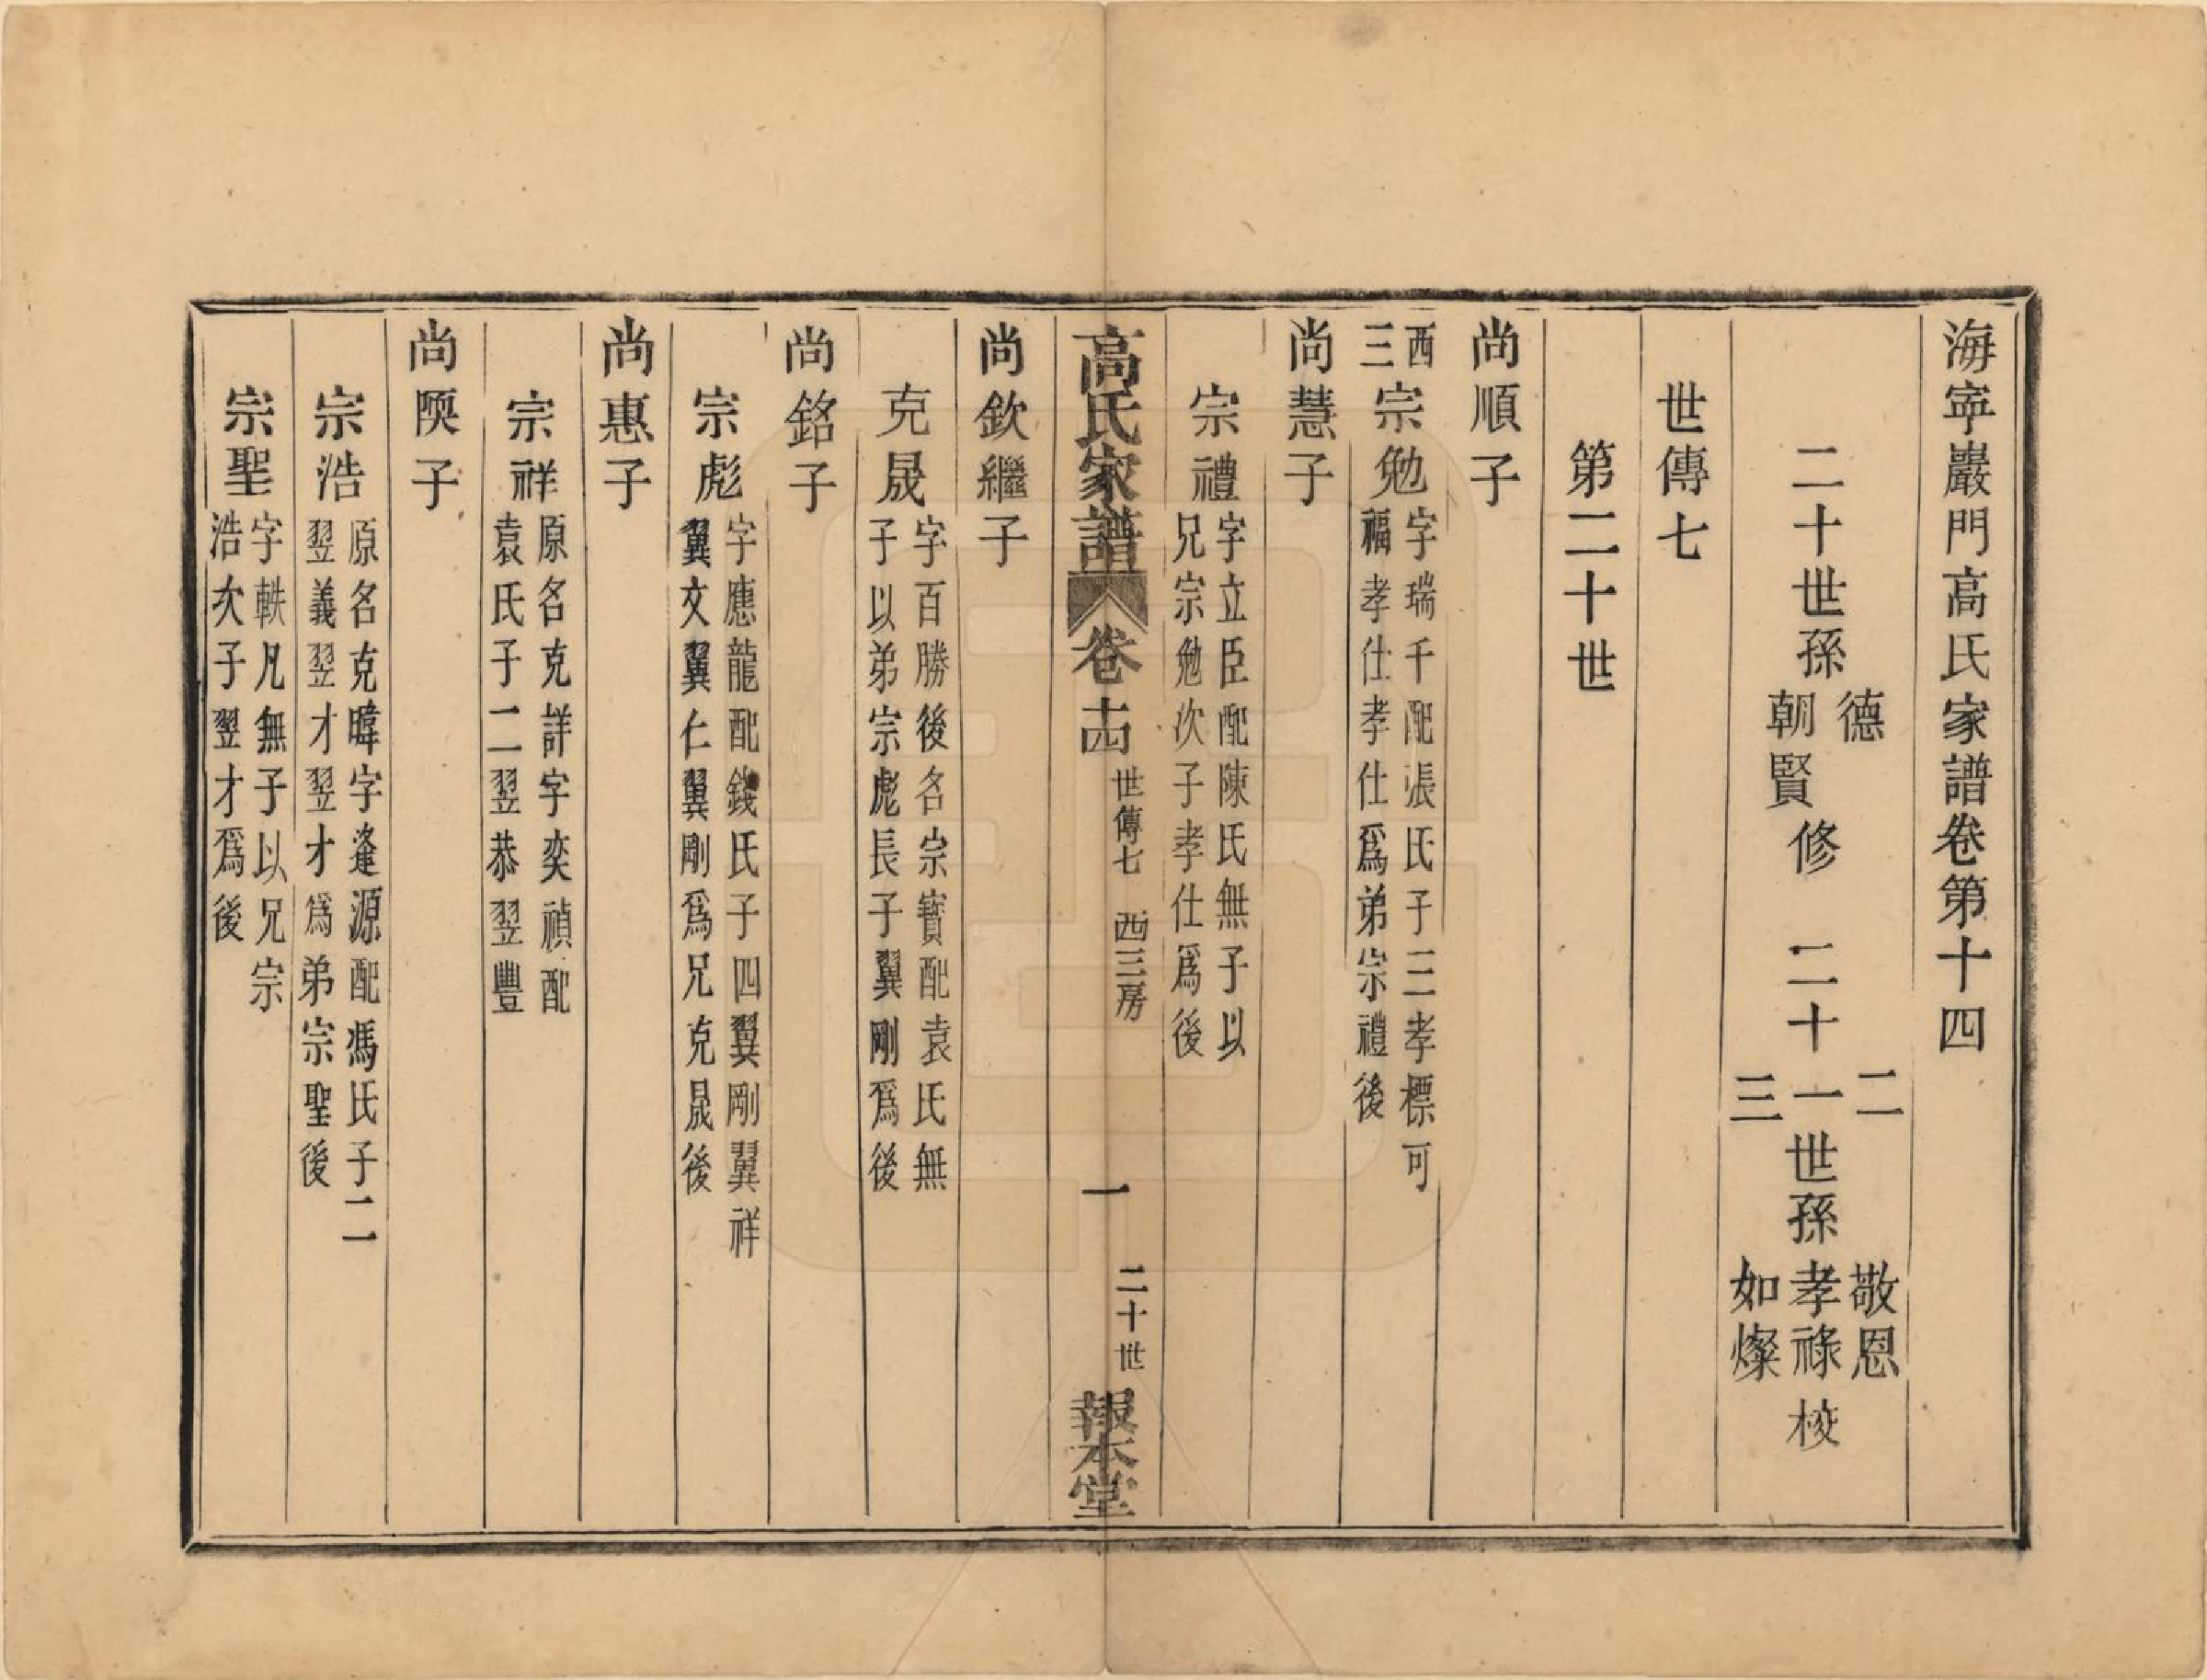 海寧巖門高氏家譜卷第十四
二十世孫德朝賢修 二十一二三世孫敬恩孝祿如燦校
世傳七
第二十世
尚順子
西三宗勉字瑞千配張氏子三孝標可
福孝仕孝仕爲弟宗禮後
尚慧子
宗禮字立臣配陳氏無子以
兄宗勉次子孝仕爲後
高氏家譜 卷十四 世傳七 西三房 一 二十世 報本堂
尚欽繼子
克晟字百勝後名宗寶配袁氏無
子以弟宗彪長子翼剛爲後
尚銘子
宗彪字應龍配錢氏子四翼剛翼祥
翼文翼仁翼剛爲兄克晟後
尚惠子
宗祥原名克詳字奕禎配
袁氏子二翌恭翌豐
尚陝子
宗浩原名克暐字逢源配馮氏子二
翌義翌才翌才爲弟宗聖後
宗聖字軼凡無子以兄宗
浩次子翌才爲後